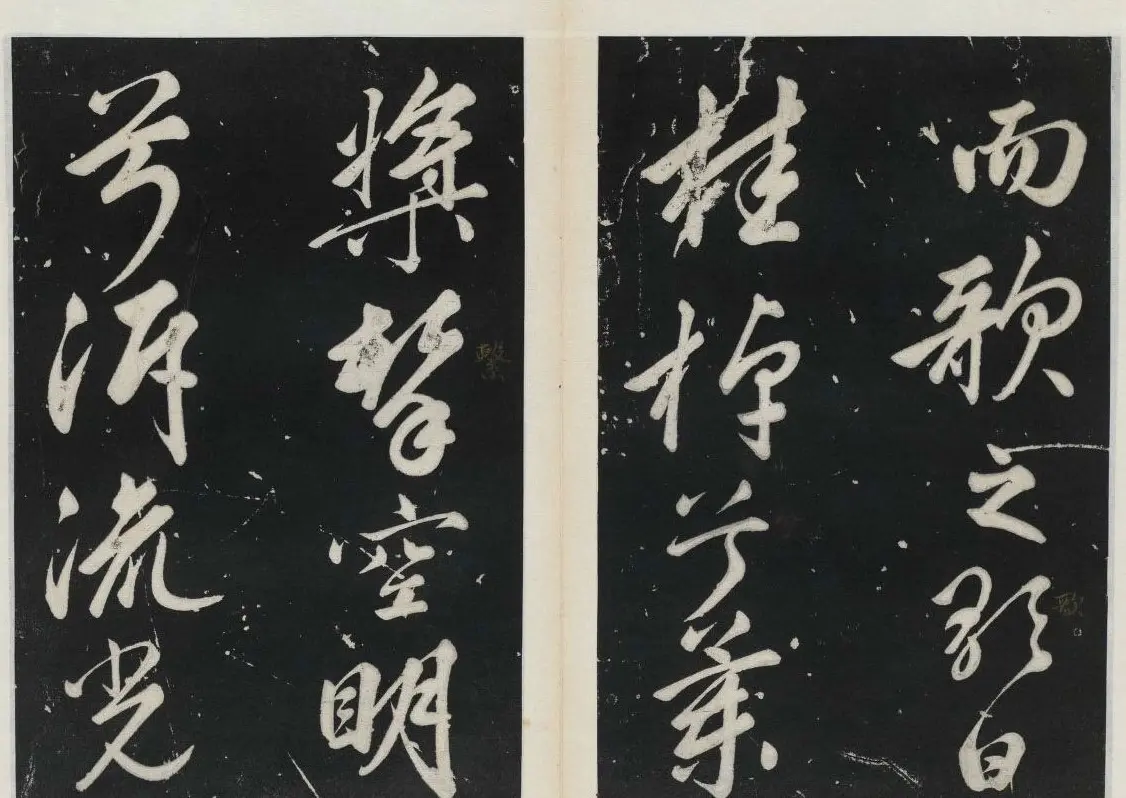 而歌之歌曰
桂棹兮蘭
槳擊空明
兮泝流光